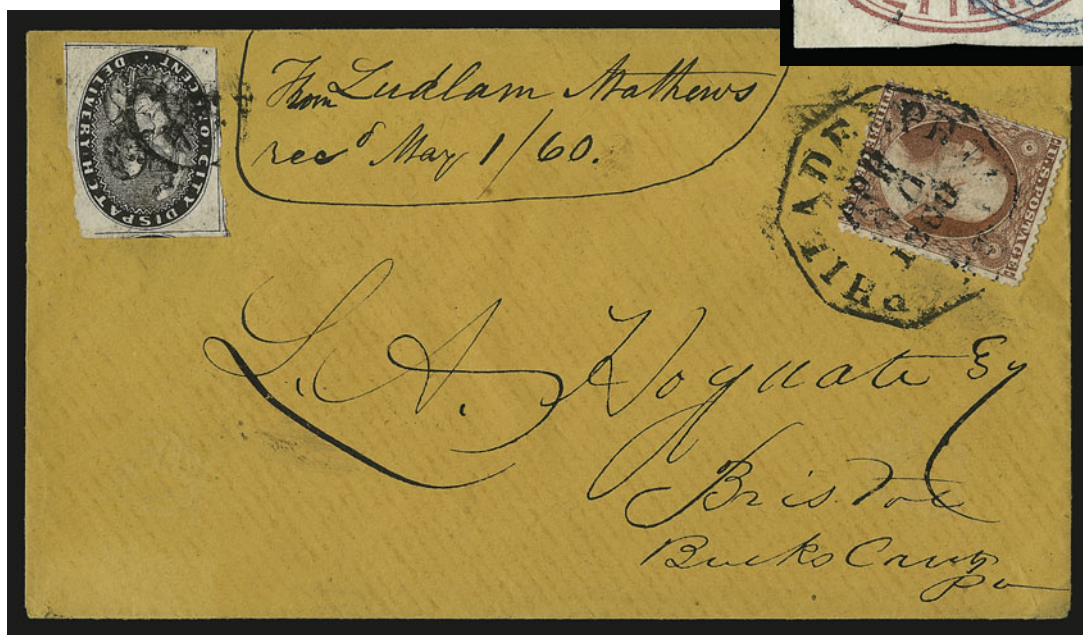 ONE CENT. P.O. CITY DISPATCH DELIVERY
From Ludlam Mathews
recd May 1/60.
PHILADELPHIA PA.
APR
1860
U.S. POSTAGE
L. A. Hoguate Esq
Bristol
Bucks County
Pa